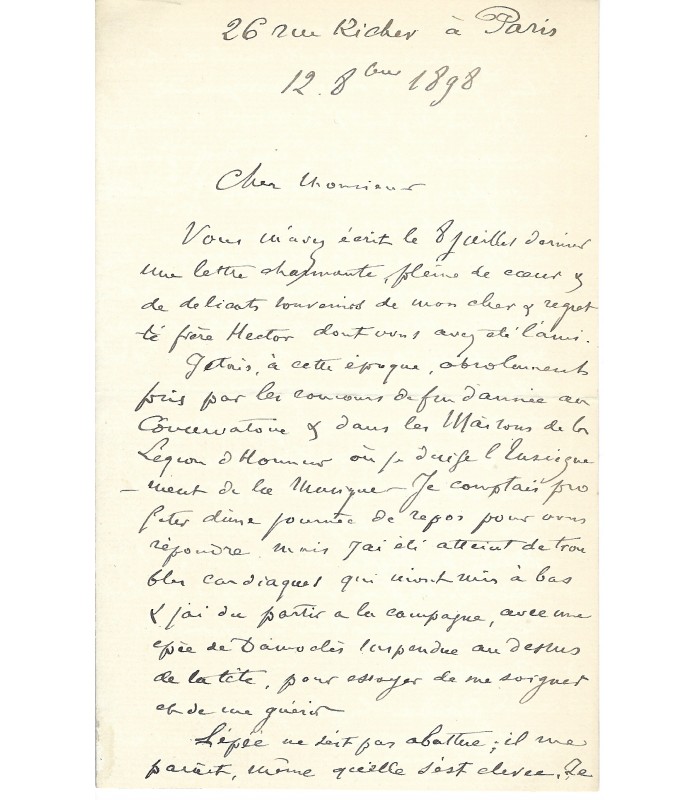 26 rue Richer à Paris
12. 8bre 1898
Cher Monsieur
Vous m'avez écrit le 8 juillet dernier
une lettre charmante, pleine de cœur &
de délicats souvenirs de mon cher & regret
té frère Hector dont vous avez été l'ami.
J'étais, à cette époque, absolument
pris par les concours de fin d'année au
Conservatoire & dans les Maisons de la
Légion d'Honneur où je dirige l'Enseigne
-ment de la Musique. Je comptais pro
fiter d'une journée de repos pour vous
répondre, mais j'ai été atteint de trou
bles cardiaques qui m'ont mis à bas
& j'ai du partir a la campagne, avec une
épée de Damoclès suspendue au dessus
de la tête, pour essayer de me soigner
et de me guérir
L'épée ne s'est pas abattue ; il me
parait, même qu'elle s'est élevée. Je